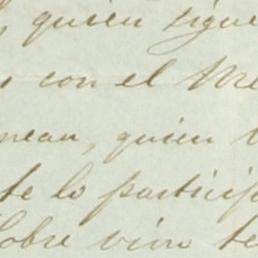 quien sigue
con el
quien
te lo particip
sobre vino te